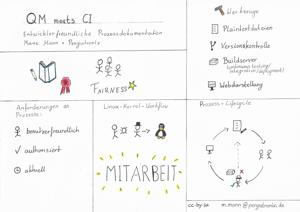 QM meets CI
Entwicklerfreundliche Prozessdokumentation
Marc Mann • Pengutronix
FAIRNESS
Werkzeuge
Plaintextdateien
Versionskontrolle
Buildserver
(continuous testing/
integration/deployment)
Webdarstellung
Anforderungen an
Prozesse:
benutzerfreundlich
authorisiert
aktuell
Linux-Kernel-Workflow
MITARBEIT
Prozess-Lifecycle
cc-by-sa
m.mann@pengutronix.de